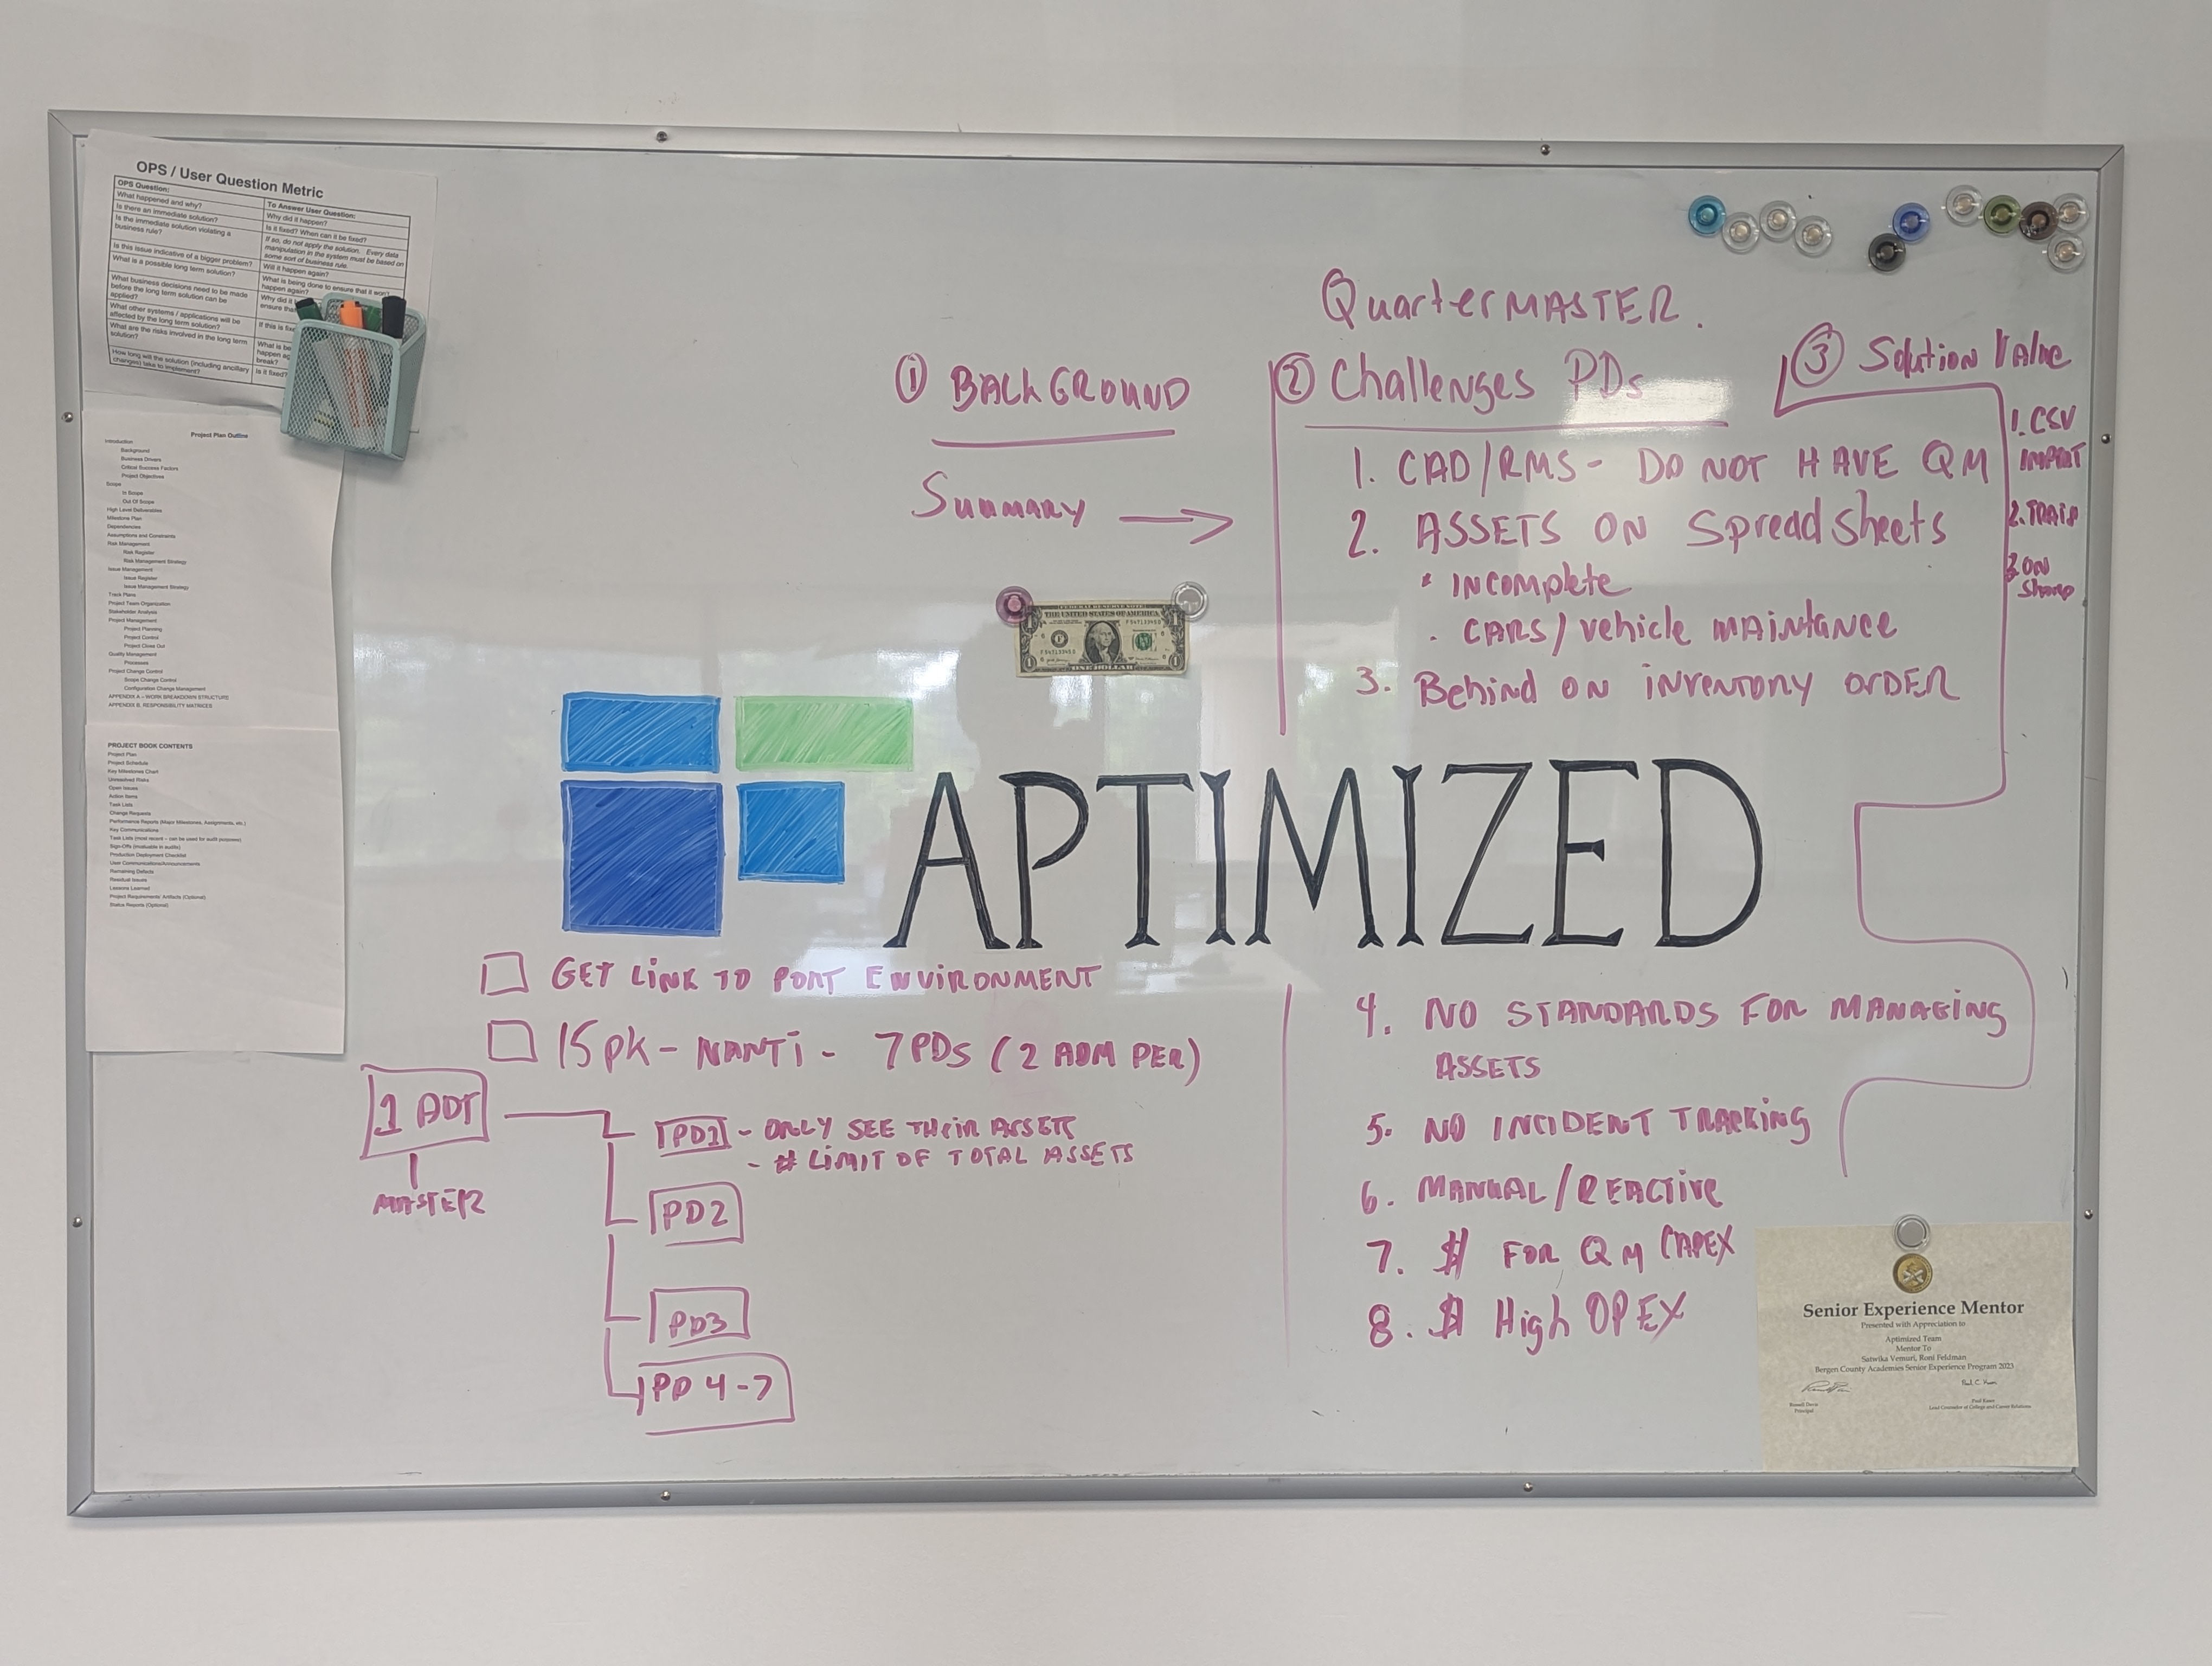 OPS / User Question Metric
OPS Question:
To Answer User Question:
What happened and why?
Why did it happen?
Is there an immediate solution?
Is it fixed? When can it be fixed?
Is the immediate solution violating a
business rule?
If so, do not apply the solution. Every data
manipulation in the system must be based on
some sort of business rule.
Is this issue indicative of a bigger problem?
Will it happen again?
What is a possible long term solution?
What is being done to ensure that it won't
happen again?
What business decisions need to be made
before the long term solution can be
applied?
Why did it
ensure
What other systems / applications will be
affected by the long term solution?
If this is
What are the risks involved in the long term
solution?
What is be
happen
break?
How long will the solution (including ancillary
changes) take to implement?
Is it fixed?
Project Plan Outline
Introduction
Background
Business Drivers
Critical Success Factors
Project Objectives
Scope
In Scope
Out Of Scope
High Level Deliverables
Milestone Plan
Dependencies
Assumptions and Constraints
Risk Management
Risk Register
Risk Management Strategy
Issue Management
Issue Register
Issue Management Strategy
Track Plans
Project Team Organization
Stakeholder Analysis
Project Management
Project Planning
Project Control
Project Close Out
Quality Management
Processes
Project Change Control
Scope Change Control
Configuration Change Management
APPENDIX A - WORK BREAKDOWN STRUCTURE
APPENDIX B. RESPONSIBILITY MATRICES
PROJECT BOOK CONTENTS
Project Plan
Project Schedule
Key Milestones Chart
Unresolved Risks
Open Issues
Action Items
Task Lists
Change Requests
Performance Reports (Major Milestones, Assignments, etc.)
Key Communications
Task Lists (most recent - can be used for audit purposes)
Sign-Offs (invaluable in audits)
Production Deployment Checklist
User Communications/Announcements
Remaining Defects
Residual Issues
Lessons Learned
Project Requirements' Artifacts (Optional)
Status Reports (Optional)
QuarterMASTER.
① BACKGROUND
Summary →
② Challenges PDs
1. CAD/RMS - DO NOT HAVE QM
2. ASSETS ON Spreadsheets
* INComplete
. CARS/vehicle MAINtance
3. Behind ON INVENTORY ORDER
③ Solution Value
1. CSV
IMPORT
2. TRAIN
3. ON
FEDERAL RESERVE NOTE
THE UNITED STATES OF AMERICA
ONE DOLLAR
APTIMIZED
☐ GET LINK TO PORT ENVIRONMENT
☐ 15pk - NANTI - 7PDs (2 ADM PER)
1 ADT
MASTER
PD1 - ONLY SEE THEIR ASSETS
- # LIMIT OF TOTAL ASSETS
PD2
PD3
PD 4-7
4. NO STANDARDS FOR MANAGING
ASSETS
5. NO INCIDENT TRACKING
6. MANUAL/REACTIVE
7. $ FOR QM CAPEX
8. $ High OPEX
Senior Experience Mentor
Presented with Appreciation to
Aptimized Team
Mentor To
Satwika Vemuri, Roni Feldman
Bergen County Academies Senior Experience Program 2023
Russell Davis
Principal
Lead Counselor of College and Career Relations